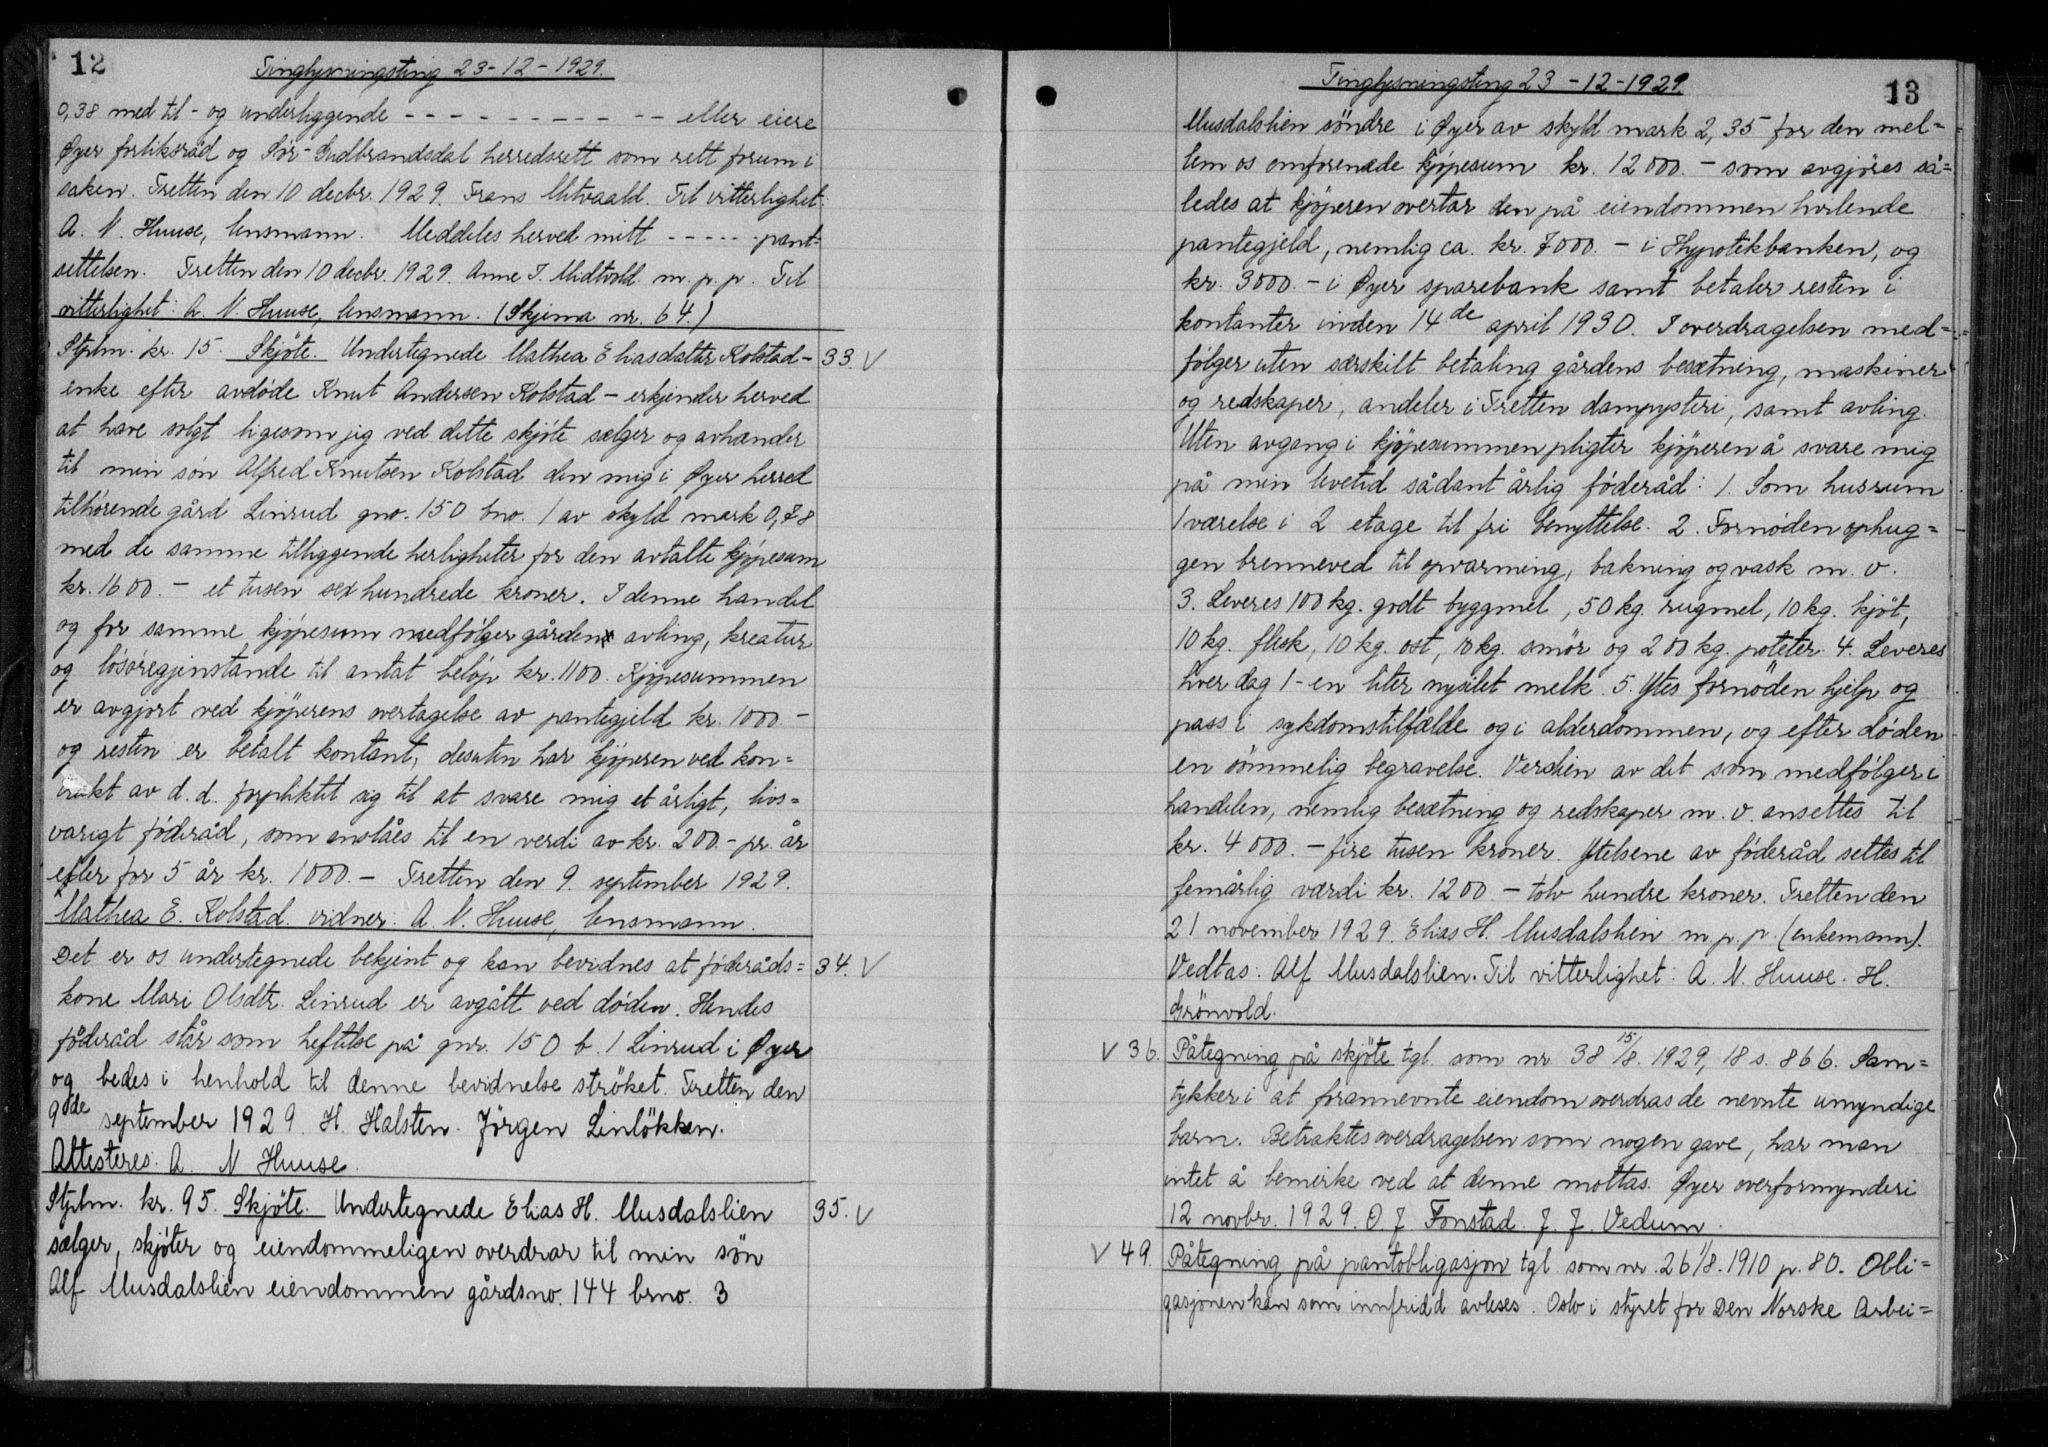 12
Tinglysningsting 23-12-1929.
0,38 med til- og underliggende - - - - - - - - - - - eller eiere
Øyer forliksråd og Sør-Gudbrandsdal herredsrett som rett forum i
saken. Tretten den 10 decbr. 1929. Frans Mitvaald. Til vitterlighet:
A. N. Huuse, lensmann. Meddeles herved mitt - - - - - pant-
settelsen. Tretten den 10 decbr. 1929. Anne J. Midtvold m. p. p. Til
vitterlighet: A. N. Huuse, lensmann. (Skjema nr. 64.)
Stplm. kr. 15. Skjøte. Undertegnede Mathea Eliasdatter Kolstad- 33. V
enke efter avdøde Knut Andersen Kolstad - erkjender herved
at have solgt ligesom jig ved dette skjøte sælger og avhænder
til min søn Alfred Knutsen Kolstad den mig i Øyer herred
tilhørende gård Linrud gno. 150 bno. 1 av skyld mark 0,78
med de samme tilliggende herligheter for den avtalte kjøpesum
kr. 1600.- et tusen sex hundrede kroner. I denne handel
og for samme kjøpesum medfølger gården avling, kreatur
og løsøregjenstande til antat beløp kr. 1100. Kjøpesummen
er avgjort ved kjøperens overtagelse av pantegjeld kr. 1000.-
og resten er betalt kontant, desuten har kjøperen ved kon=
trakt av d. d. forpliktet sig til at svare mig et årligt, livs=
varigt føderåd, som anslåes til en verdi av kr. 200.- pr. år
eller for 5 år kr. 1000.- Tretten den 9. september 1929.
Mathea E. Kolstad. vidner: A. N. Huuse, lensmann.
Det er os undertegnede bekjent og kan bevidnes at føderåds= 34. V
kone Mari Olsdtr. Linrud er avgått ved døden. Hendes
føderåd står som heftelse på gnr. 150 b. 1 Linrud i Øyer
og bedes i henhold til denne bevidnelse strøket. Tretten den
9de september 1929. H. Halsten. Jørgen Linløkken.
Attesteres: A. N Huuse.
Stplm. kr. 95. Skjøte. Undertegnede Elias H. Musdalslien 35. V
sælger, skjøter og eiendommeligen overdrar til min søn
Alf Musdalslien eiendommen gårdsno. 144 brno. 3
13
Tinglysningsting 23-12-1929
Musdalslien søndre i Øyer av skyld mark 2,35 for den mel=
lem os omforenede kjøpesum kr. 12000.- som avgjøres så=
ledes at kjøperen overtar den på eiendommen hvilende
pantegjeld, nemlig ca. kr. 7000.- i Hypotekbanken, og
kr. 3000.- i Øyer sparebank samt betaler resten i
kontanter inden 14de april 1930. I overdragelsen med=
følger uten særskilt betaling gårdens besætning, maskiner
og redskaper, andeler i Tretten dampysteri, samt avling.
Uten avgang i kjøpesummen pligter kjøperen å svare mig
på min levetid sådant årlig føderåd: 1. Som husrum
1 værelse i 2 etage til fri benyttelse. 2. Fornøden ophug=
gen brenneved til opvarming, bakning og vask m. v.
3. Leveres 100 kg. godt byggmel, 50 kg. rugmel, 10 kg. kjøt,
10 kg. flesk, 10 kg. ost, 10 kg. smör og 200 kg. poteter. 4. Leveres
hver dag 1- en liter nysilet melk. 5. Ytes fornøden hjelp og
pass i sykdomstilfælde og i alderdommen, og efter døden
en sømmelig begravelse. Verdien av det som medfølger i
handelen, nemlig besætning og redskaper m. v. ansettes til
kr. 4000.- fire tusen kroner. Ytelsene av føderåd settes til
femårlig værdi kr. 1200 - tolv hundre kroner. Tretten den
21 november 1929. Elias H. Musdalslien m. p. p. (enkemann).
Vedtas: Alf Musdalslien. Til vitterlighet: A. N. Huuse. H.
Grönvold.
V 36. Påtegning på skjøte tgl. som nr 38 15/8. 1929, 18 s. 866. Sam=
tykker i at forannevnte eiendom overdras de nevnte umyndige
barn. Betraktes overdragelsen som nogen gave, har man
intet å bemerke ved at denne mottas. Øyer overformynderi
12 novbr. 1929. O. J. Fonstad. J. J. Vedum.
V 49. Påtegning på pantobligasjon tgl. som nr. 26 1/8. 1910 p. 80. Obli=
gasjonen kan som innfridd avleses. Oslo i styret for Den Norske Arbei=